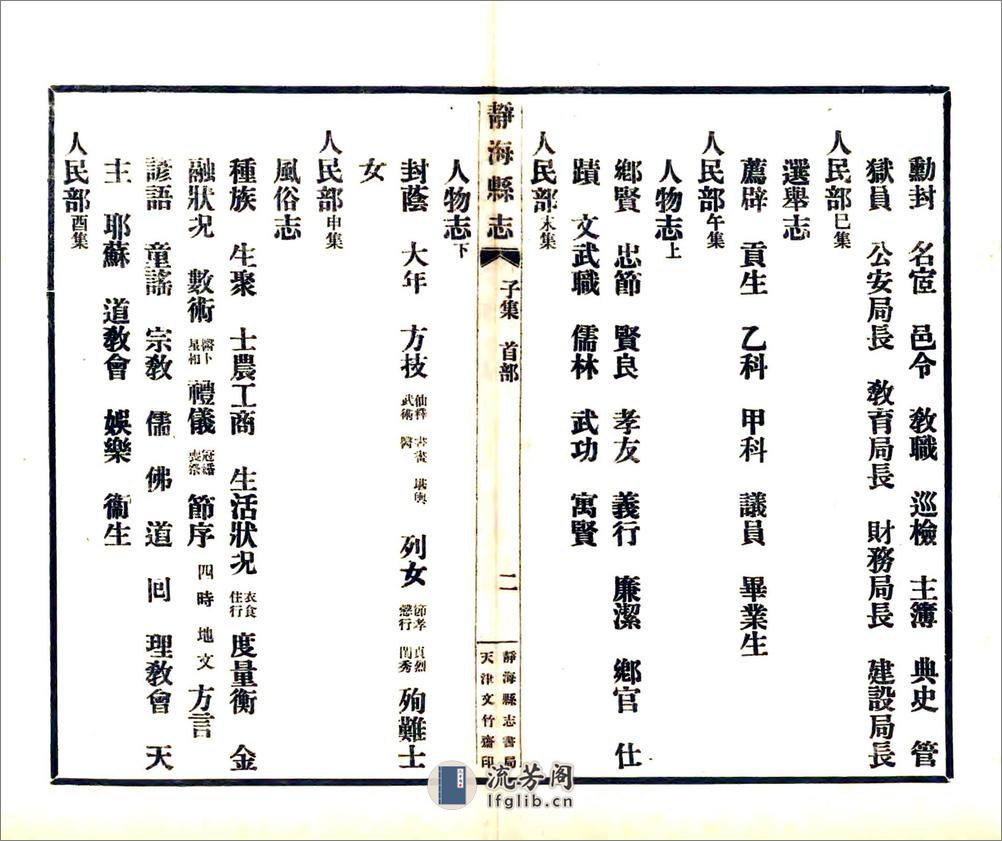 勳封　名宦　邑令　敎職　巡檢　主簿　典史　管
獄員　公安局長　敎育局長　財務局長　建設局長
人民部 巳集
選舉志
薦辟　貢生　乙科　甲科　議員　畢業生
人民部 午集
人物志 上
鄉賢　忠節　賢良　孝友　義行　廉潔　鄉官　仕
蹟　文武職　儒林　武功　寓賢
人民部 未集
靜海縣志　子集　首部　二
靜海縣志書局
天津文竹齋印
人物志 下
封蔭　大年　方技 仙釋 書畫 堪輿 武術 醫　列女 節孝 貞烈 懿行 閨秀 殉難士
女
人民部 申集
風俗志
種族　生聚　士農工商　生活狀況 衣食住行 度量衡　金
融狀況　數術 醫卜星相 禮儀 冠婚喪祭 節序 四時 地文 方言
諺語　童謠　宗敎　儒　佛　道　回　理敎會　天
主　耶蘇　道敎會　娛樂　衞生
人民部 酉集
流芳阁
lfglib.cn